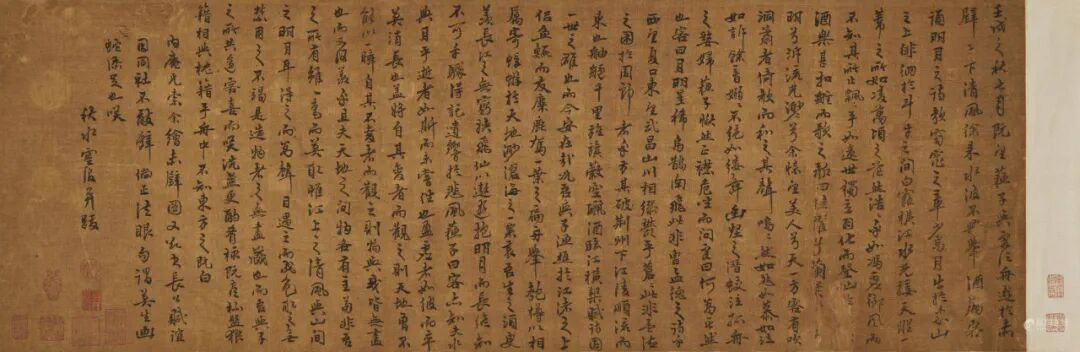 壬戌之秋七月既望蘇子與客泛舟遊於赤
壁之下清風徐來水波不興舉酒屬客
誦明月之詩歌窈窕之章少焉月出於東山
之上徘徊於斗牛之間白露橫江水光接天縱一
葦之所如凌萬頃之茫然浩浩乎如馮虛御風而
不知其所止飄飄乎如遺世獨立羽化而登仙於是飲
酒樂甚扣舷而歌之歌曰桂棹兮蘭槳擊空
明兮泝流光渺渺兮余懷望美人兮天一方客有吹
洞簫者倚歌而和之其聲嗚嗚然如怨如慕如泣
如訴餘音嫋嫋不絕如縷舞幽壑之潛蛟泣孤舟
之嫠婦蘇子愀然正襟危坐而問客曰何為其然
也客曰月明星稀烏鵲南飛此非曹孟德之詩乎
西望夏口東望武昌山川相繆鬱乎蒼蒼此非孟德
之困於周郎者乎方其破荊州下江陵順流而
東也舳艫千里旌旗蔽空釃酒臨江橫槊賦詩固
一世之雄也而今安在哉況吾與子漁樵於江渚之上
侶魚蝦而友麋鹿駕一葉之扁舟舉匏樽以相
屬寄蜉蝣於天地渺滄海之一粟哀吾生之須臾
羨長江之無窮挾飛仙以遨遊抱明月而長終知
不可乎驟得託遺響於悲風蘇子曰客亦知夫水
與月乎逝者如斯而未嘗往也盈虛者如彼而卒
莫消長也蓋將自其變者而觀之則天地曾不
能以一瞬自其不變者而觀之則物與我皆無盡
也而又何羨乎且夫天地之間物各有主苟非吾
之所有雖一毫而莫取惟江上之清風與山間
之明月耳得之而為聲目遇之而成色取之無
禁用之不竭是造物者之無盡藏也而吾與子
之所共適客喜而笑洗盞更酌肴核既盡杯盤狼
籍相與枕藉乎舟中不知東方之既白
索余繪赤壁圖又書長公賦誼
同同社不敢辭倘正法眼勿謂葛生畫
蛇添足也咲
秋水并題